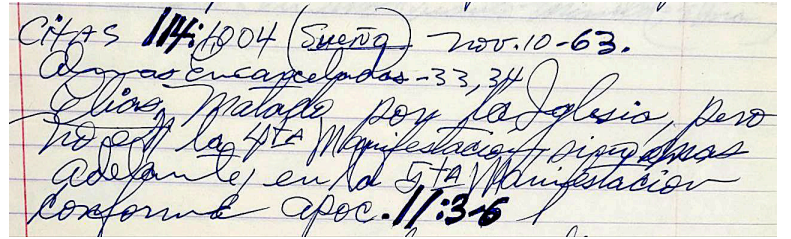 CITAS 114:1004 (Sueño) Nov. 10-63.
Almas Encarceladas - 33,34
Elias, Matado por la Iglesia, pero
no en la 4TA Manifestacion sino mas
adelante, en la 5TA Manifestacion
conforme apoc. 11:3-6